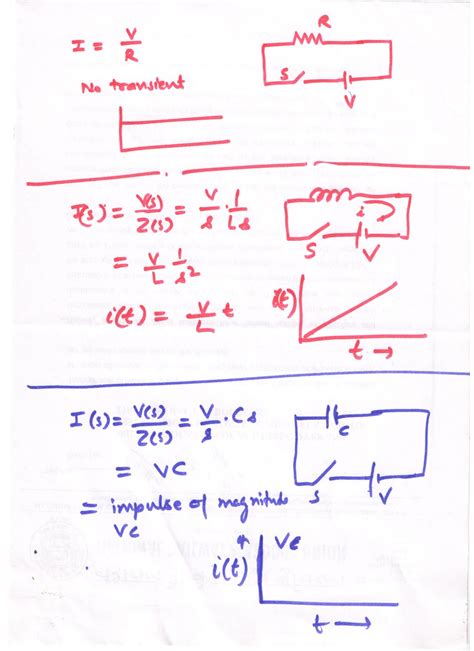 I = V/R
R
No transient
S
V
I(s) = V(s)/Z(s) = V/s · 1/Ls
i
S
V
= V/L 1/s²
i(t) = V/L t
i(t)
t →
I(s) = V(s)/Z(s) = V/s · Cs
C
= VC
S
V
= impulse of magnitude
VC
VC
i(t)
t →